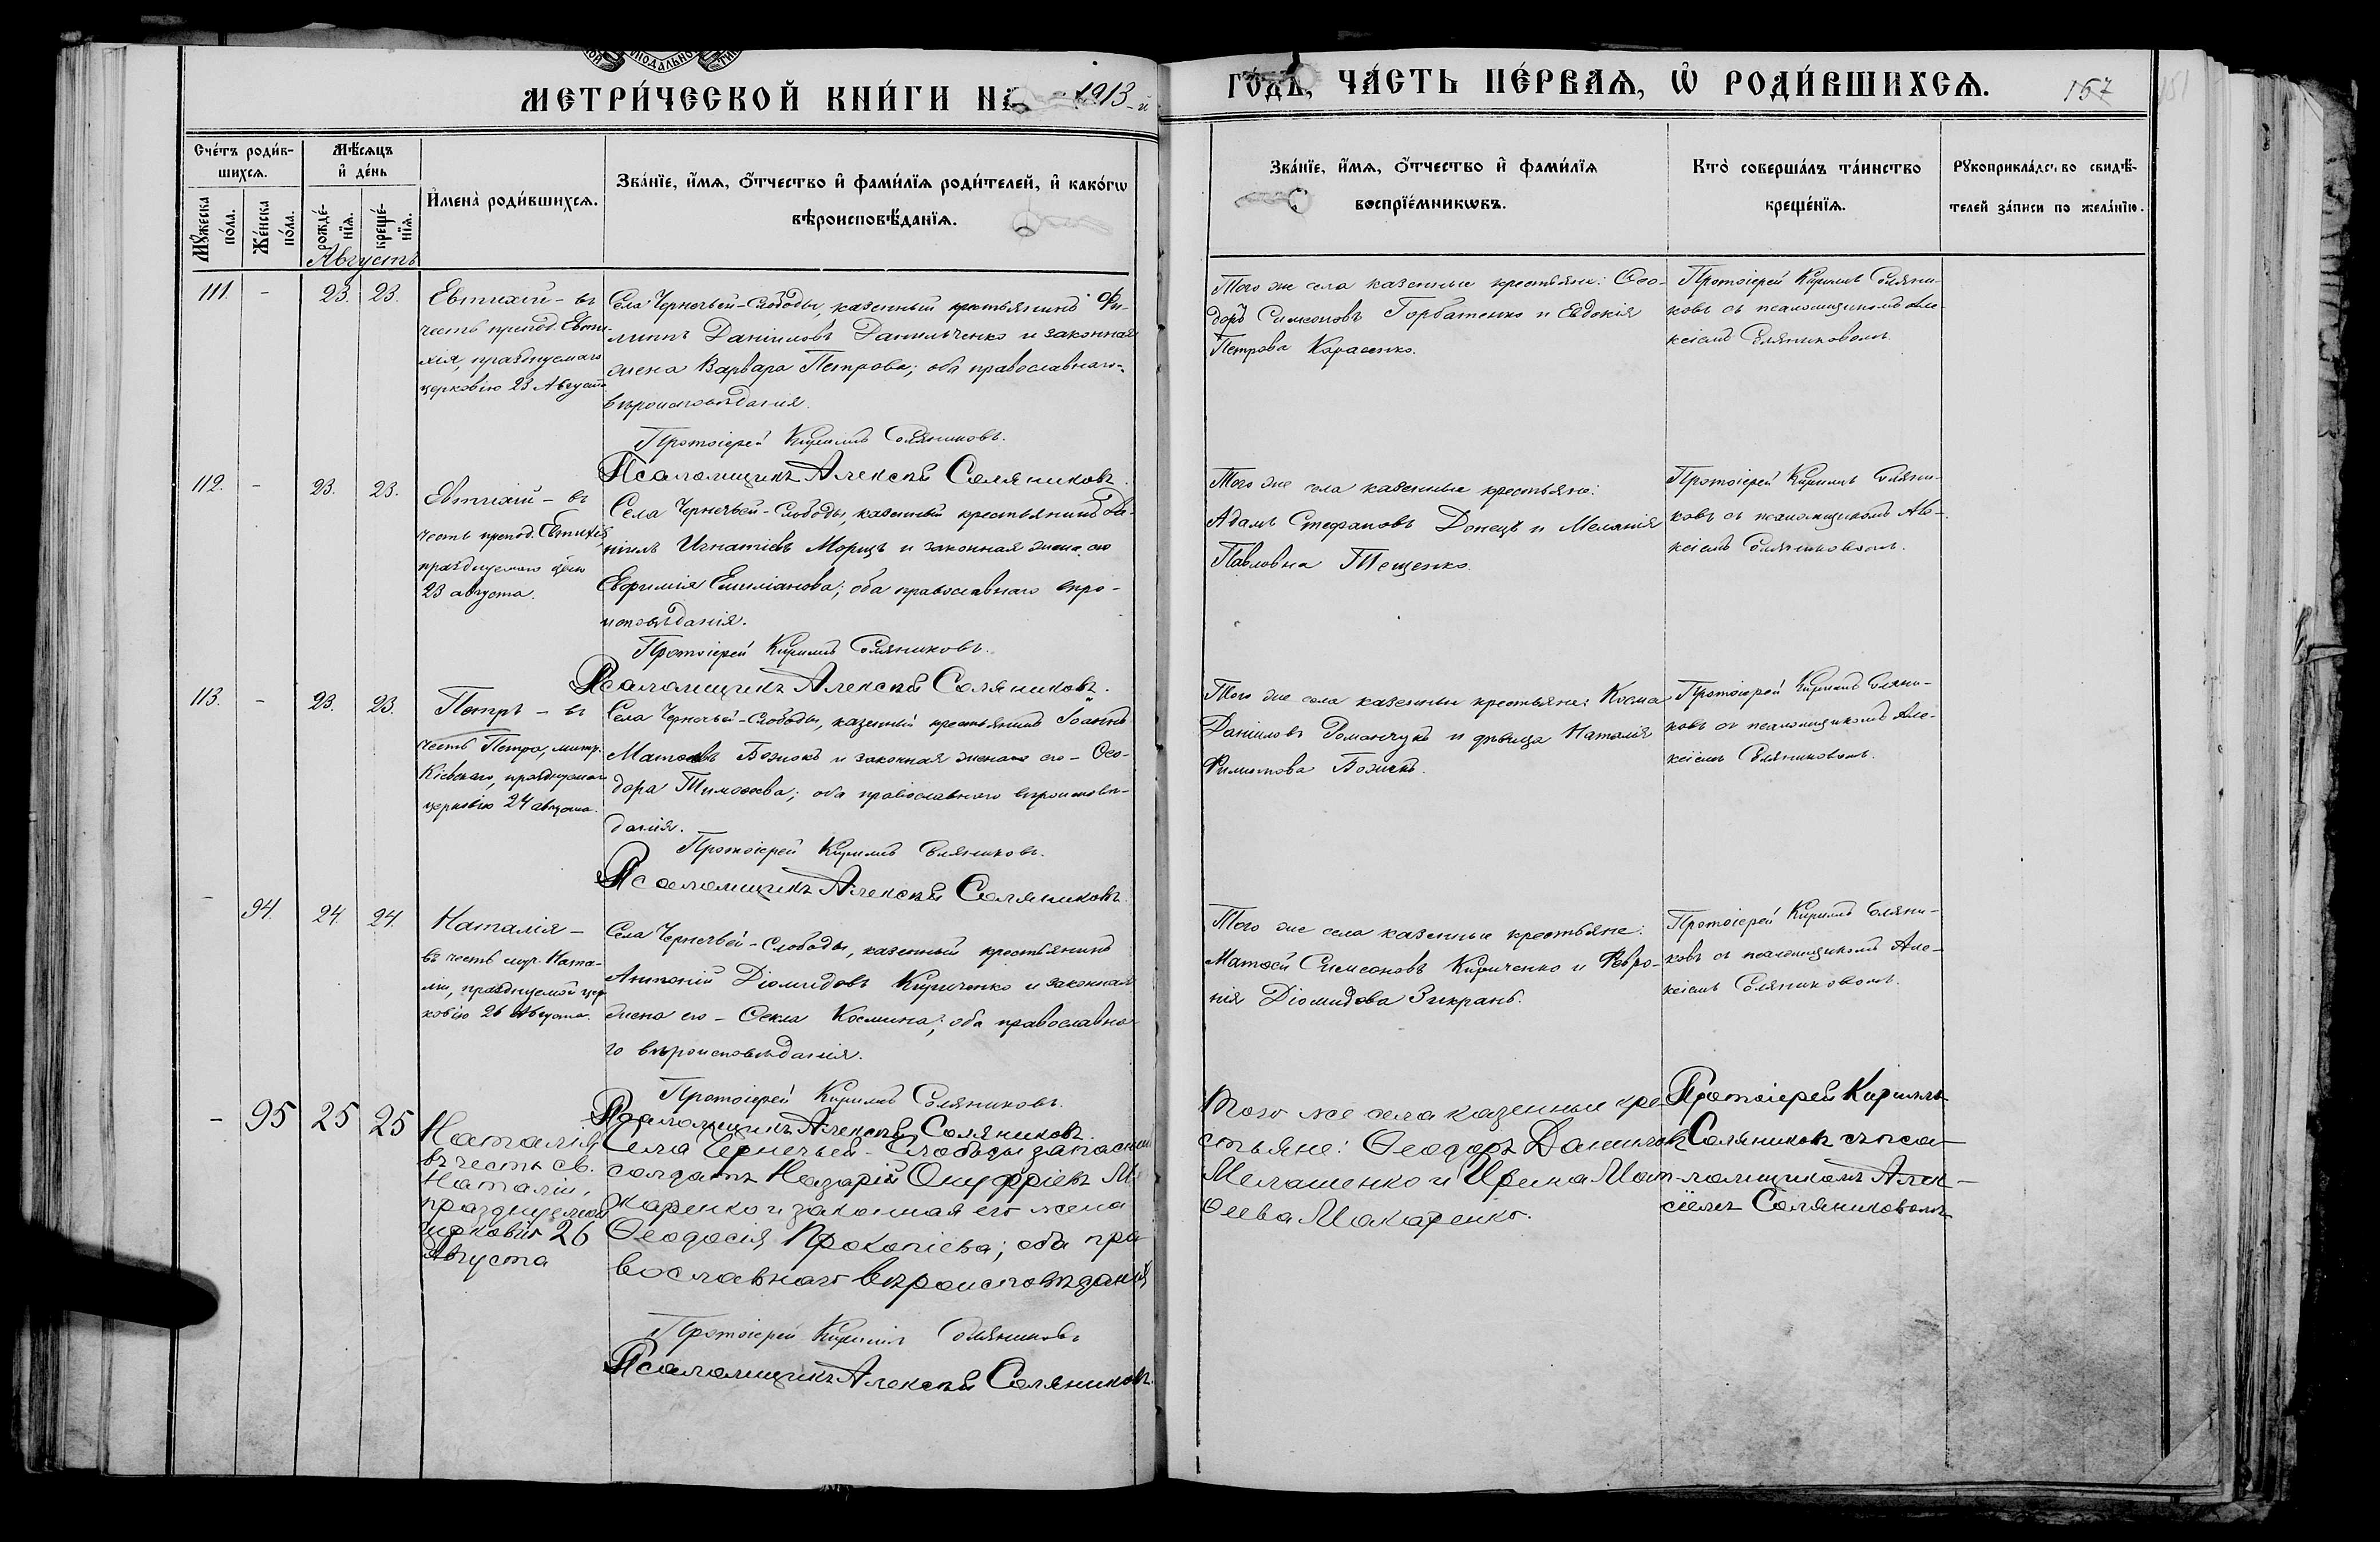 МЕТРИ́ЧЕСКОЙ КНИ́ГИ НА 1913-й
ГО́ДЪ, ЧА́СТЬ ПЕ́РВАѦ, Ѡ҆ РОДИ́ВШИХСѦ.
167
Сче́тъ роди́в-
шихсѧ.
Мѣ́сѧцъ
и҆ де́нь
Мꙋ́жеска
по́ла.
Же́нска
по́ла.
рожде́-
нїѧ.
креще́-
нїѧ.
Августъ
И҆мена̀ роди́вшихсѧ.
Зва́нїе, и҆́мѧ, ѻ҆́тчество и҆ фами́лїѧ роди́телей, и҆ како́гѡ
вѣроисповѣ́данїѧ.
Зва́нїе, и҆́мѧ, ѻ҆́тчество и҆ фами́лїѧ
воспрїе́мникѡвъ.
Кто̀ соверша́лъ та́инство
креще́нїѧ.
Рꙋкоприкла́дство свидѣ́-
телей за́писи по жела́нїю.
111. - 23. 23.
Евтихий - въ
честь препод. Евти-
хія, празднуемаго
церковію 23 Августа
Села Чернечьей-Слободы, казенный крестьянинъ Фи-
липпъ Даніиловъ Данильченко и законная
жена Варвара Петрова; оба православнаго
вѣроисповѣданія.
Протоіерей Кириллъ Соляниковъ.
Псаломщикъ Алексѣй Соляниковъ.
Того же села казенные крестьяне: Ѳео-
доръ Симеоновъ Горбатенко и Евдокія
Петрова Карасенко.
Протоіерей Кириллъ Соляни-
ковъ съ псаломщикомъ Але-
ксіемъ Соляниковомъ.
112. - 23. 23.
Евтихій - въ
честь препод. Евтихія
празднуемаго цѣю
23 августа.
Села Чернечьей-Слободы, казенный крестьянинъ Да-
ніилъ Игнатіевъ Морицъ и законная жена его
Евфимія Емиліанова; оба православнаго вѣро-
исповѣданія.
Протоіерей Кириллъ Соляниковъ.
Псаломщикъ Алексѣй Соляниковъ.
Того же села казенные крестьяне:
Адамъ Стефановъ Донецъ и Меланія
Павловна Тещенко.
Протоіерей Кириллъ Соляни-
ковъ съ псаломщикомъ Але-
ксіемъ Соляниковомъ.
113. - 23. 23.
Петръ - въ
честь Петра, митр.
Кіевскаго, празднуемаго
церковію 24 августа.
Села Чернечьей-Слободы, казенный крестьянинъ Іоаннъ
Матѳеевъ Божокъ и законная жена его - Ѳео-
дора Тимоѳеева; оба православнаго вѣроисповѣ-
данія.
Протоіерей Кириллъ Соляниковъ.
Псаломщикъ Алексѣй Соляниковъ.
Того же села казенные крестьяне: Косма
Даніиловъ Романчукъ и дѣвица Наталія
Филиппова Божокъ.
Протоіерей Кириллъ Соляни-
ковъ съ псаломщикомъ Але-
ксіемъ Соляниковомъ.
- 94. 24. 24.
Наталія -
въ честь муч. Ната-
ліи, празднуемой цер-
ковію 26 Августа.
Села Чернечьей-Слободы, казенный крестьянинъ
Антоній Діомидовъ Кириченко и законная
жена его - Ѳекла Космина; оба православна-
го вѣроисповѣданія.
Протоіерей Кириллъ Соляниковъ.
Псаломщикъ Алексѣй Соляниковъ.
Того же села казенные крестьяне:
Матѳей Симеоновъ Кириченко и Февро-
нія Діомидова Зикрань.
Протоіерей Кириллъ Соляни-
ковъ съ псаломщикомъ Але-
ксіемъ Соляниковомъ.
- 95 25 25
Наталія
въ честь св.
Наталіи,
празднуемой
церковію 26
Августа
Села Чернечьей-Слободы запасный
солдатъ Назарій Онуфріевъ Ма
каренко и законная его жена
Ѳеодосія Прокопіева; оба пра
вославнаго вѣроисповѣданія
Протоіерей Кириллъ Соляниковъ
Псаломщикъ Алексѣй Соляниковъ.
Того же села казенные кре
стьяне: Ѳеодоръ Данииловъ
Мелашенко и Ирина Мат-
ѳеева Макаренко.
Протоіерей Кириллъ
Соляниковъ съ пса-
ломщикомъ Алек-
сіемъ Соляниковомъ